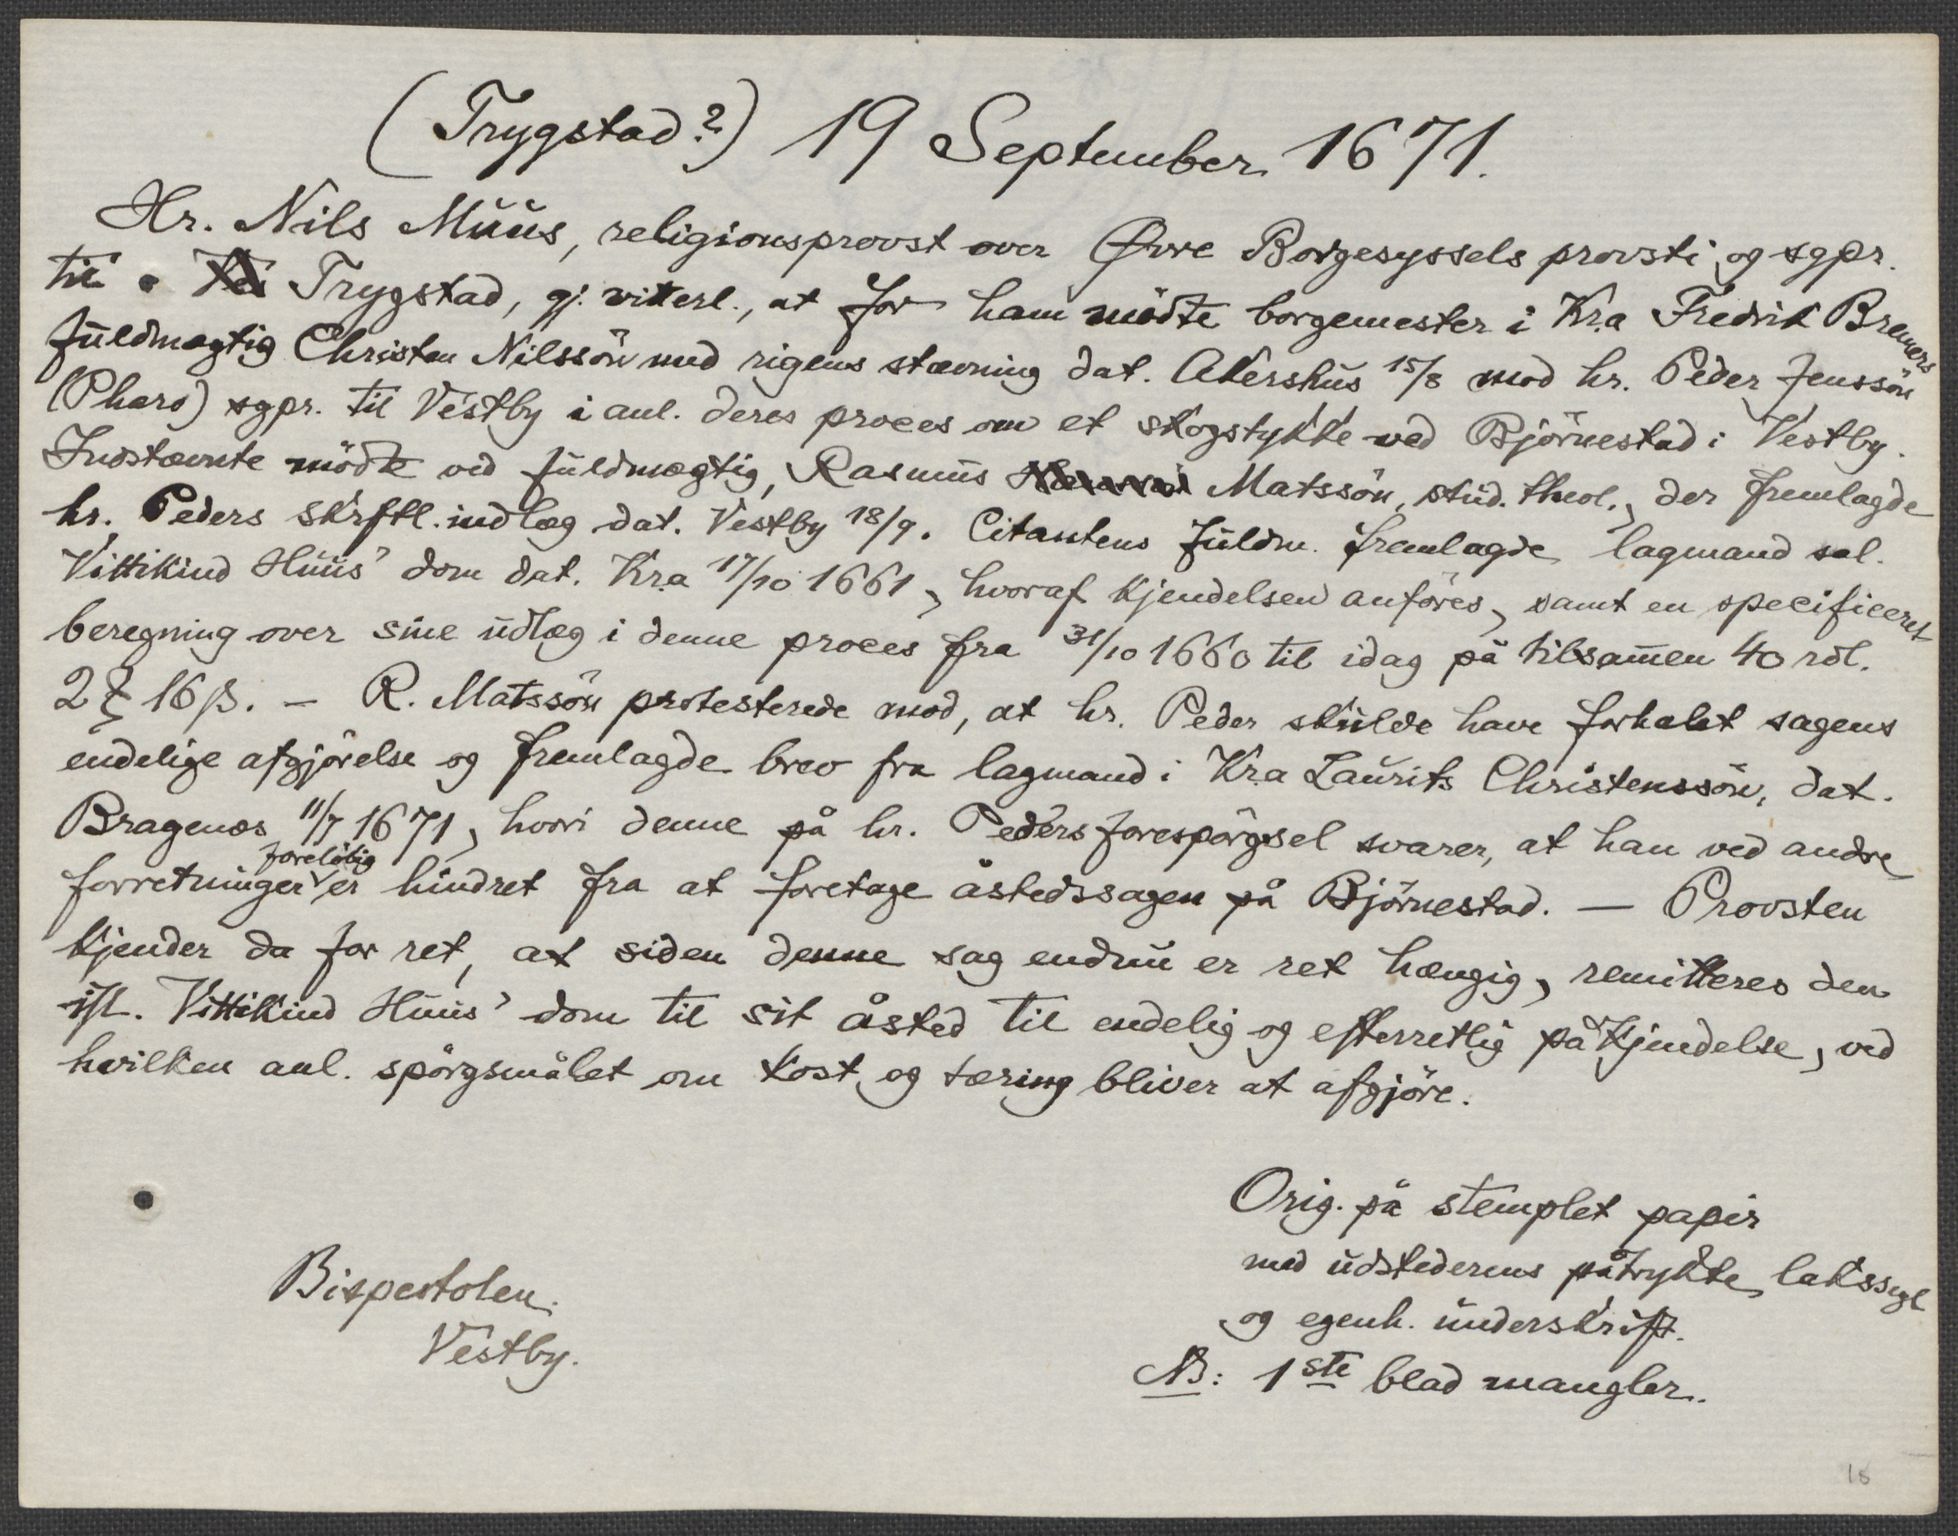 (Trygstad?) 19 September 1671.
Hr. Nils Muus, religionsprovst over Øvre Borgesyssels provsti og sgpr.
til Trygstad, gj. vitterl., at for ham mödte borgemester i Kra Fredrik Bremers
fuldmægtig Christen Nilssön med rigens stævning dat. Akershus 15/8 mod hr. Peder Jenssön
(Pharo) sgpr. til Vestby i anl. deres proces om et skogstykke ved Björnestad i Vestby.
Indstævnte mödte ved fuldmægtig, Rasmus Matssön, stud. theol., der fremlagde
hr. Peders skrftl. indlæg dat. Vestby 18/9. Citantens fuldm. fremlagde lagmand sal.
Vittikind Huus' dom dat. Kra 17/10 1661, hvoraf kjendelsen anföres, samt en specificeret
beregning over sine udlæg i denne proces fra 31/10 1660 til idag på tilsam̄en 40 rdl.
2 ℥ 16 β. — R. Matssön protesterede mod, at hr. Peder skulde have forhalet sagens
endelige afgjörelse og fremlagde brev fra lagmand i Kra Laurits Christenssön, dat.
Bragenæs 11/7 1671, hvori denne på hr. Peders forespörgsel svarer, at han ved andre
forretninger foreløbig er hindret fra at foretage åstedssagen på Björnestad. — Provsten
kjender da for ret, at siden denne sag endnu er ret hængig, remitteres den
ifl. Vittikind Huus' dom til sit åsted til endelig og efterretlig påkjendelse, ved
hvilken anl. spörgsmålet om kost og tæring bliver at afgjöre.
Orig. på stemplet papir
med udstederens påtrykte lakssegl
og egenh. underskrift.
NB: 1ste blad mangler.
Bispestolen.
Vestby.
18